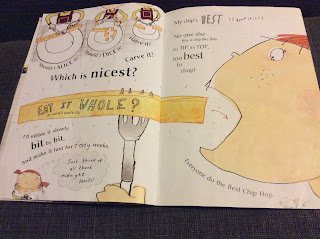 Should I SLICE it?
Should I DICE it?
Halve it?
Carve it?
Which is nicest?
EAT IT WHOLE?
I'll nibble it slowly,
bit by bit,
And make it last for forty weeks.
Just think of
all those
midnight
feasts!
My chip's BEST
No one else
has a chip like this
TIP TOP,
Too best
to
chop!
Everyone do the Best Chip Hop